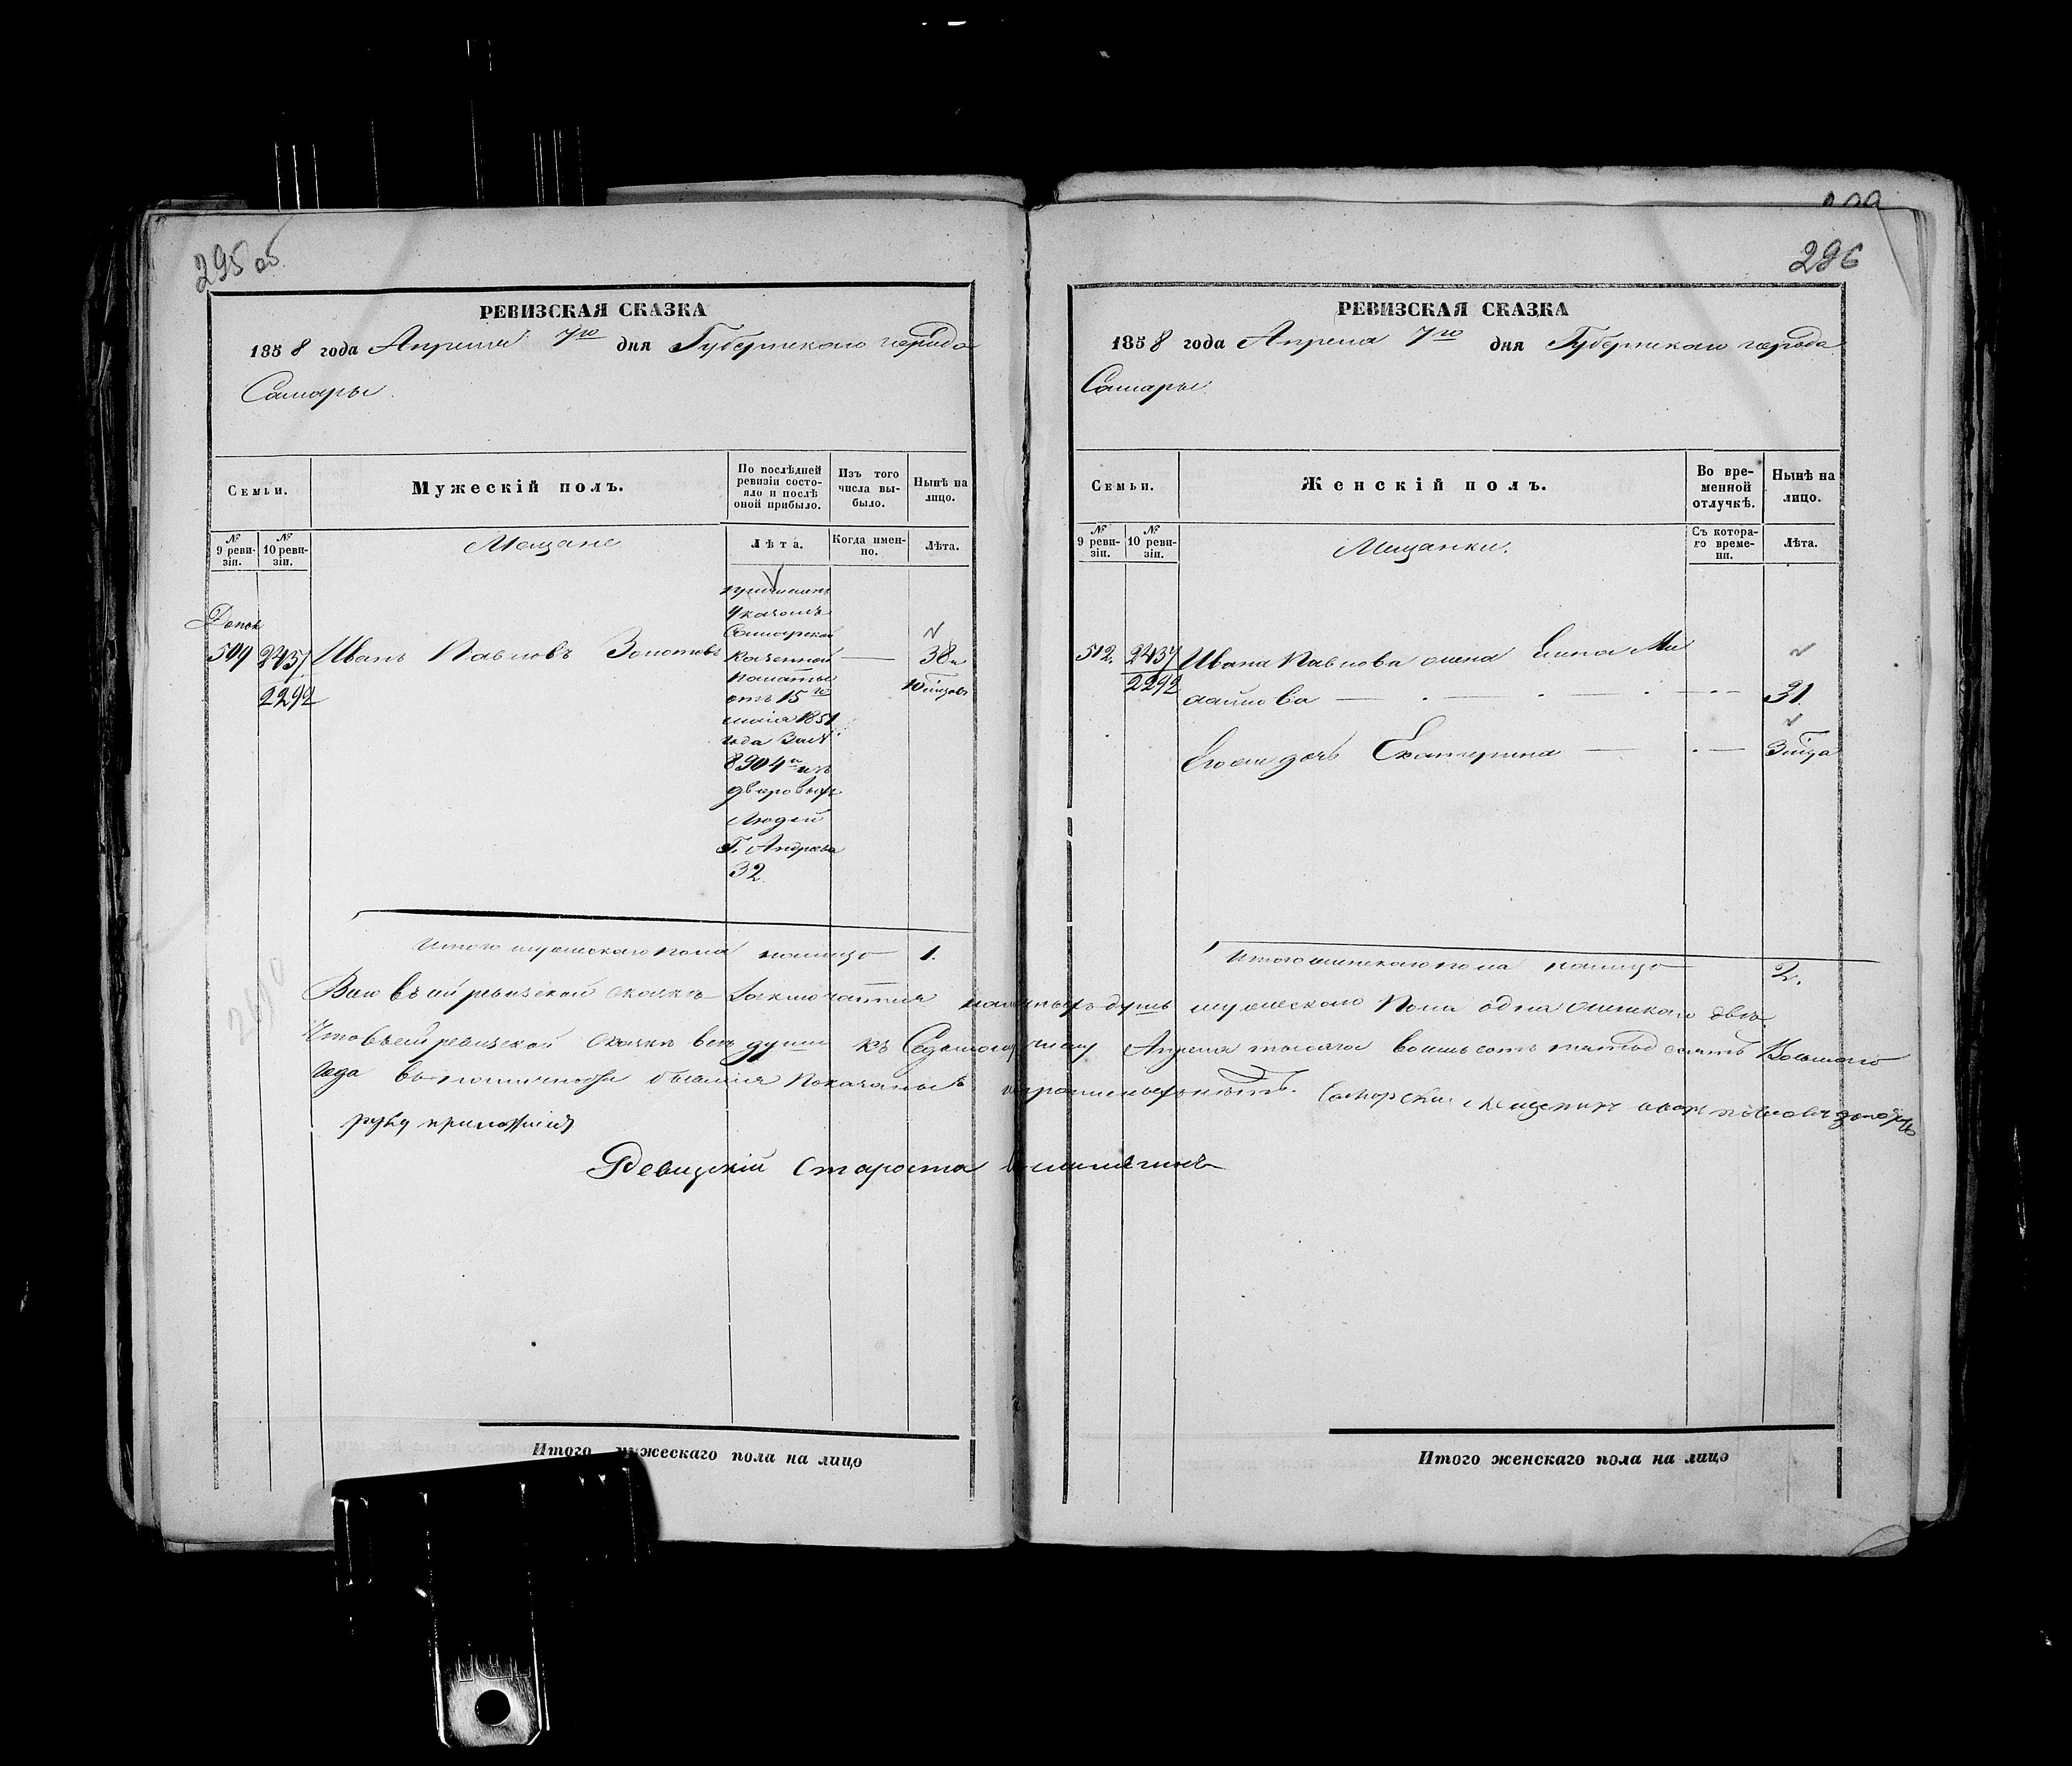 295 об
РЕВИЗСКАЯ СКАЗКА
1858 года Апреля 7го дня Губернскаго города
Самары
Семьи.
Мужескій полъ.
По послѣдней ревизіи состояло и послѣ оной прибыло.
Изъ того числа выбыло.
Нынѣ на лицо.
№ 9 ревизіи.
№ 10 ревизіи.
Мещане
Лѣта.
Когда именно.
Лѣта.
причислен
Указомъ
Самарской
Казенной
Палаты
отъ 15го
маія 1851
года за №
8904м изъ
дворовыхъ
Людей
Г. Андреева
32
Допол
509 2437 Иванъ Павловъ Золотовъ — 38 и
2292
10 місцовъ
Итого мужескаго пола налицо 1.
296
РЕВИЗСКАЯ СКАЗКА
1858 года Апреля 7го дня Губернскаго города
Самары
Семьи.
Женскій полъ.
Во временной отлучкѣ.
Нынѣ на лицо.
№ 9 ревизіи.
№ 10 ревизіи.
Мещанки.
Съ котораго времени.
Лѣта.
512. 2437 Ивана Павлова жена Елена Ми
2292 хайлова — 31.
Его же дочь Екатерина — 3 года
Итого женскаго пола налицо 2.
Всего въ сей ревизской сказкѣ заключается наличныхъ душъ мужескаго пола одна женскаго двѣ.
Что въ сей ревизской сказке все души къ Седьмому числу Апреля тысяча восемьсотъ пятьдесятъ Восьмаго
года въ наличности бывшія показаны и прописныхъ нѣтъ. Самарски мещенинъ иванъ павловъ золотовъ
руку приложилъ
Ревизскій староста
Итого мужескаго пола на лицо
Итого женскаго пола на лицо